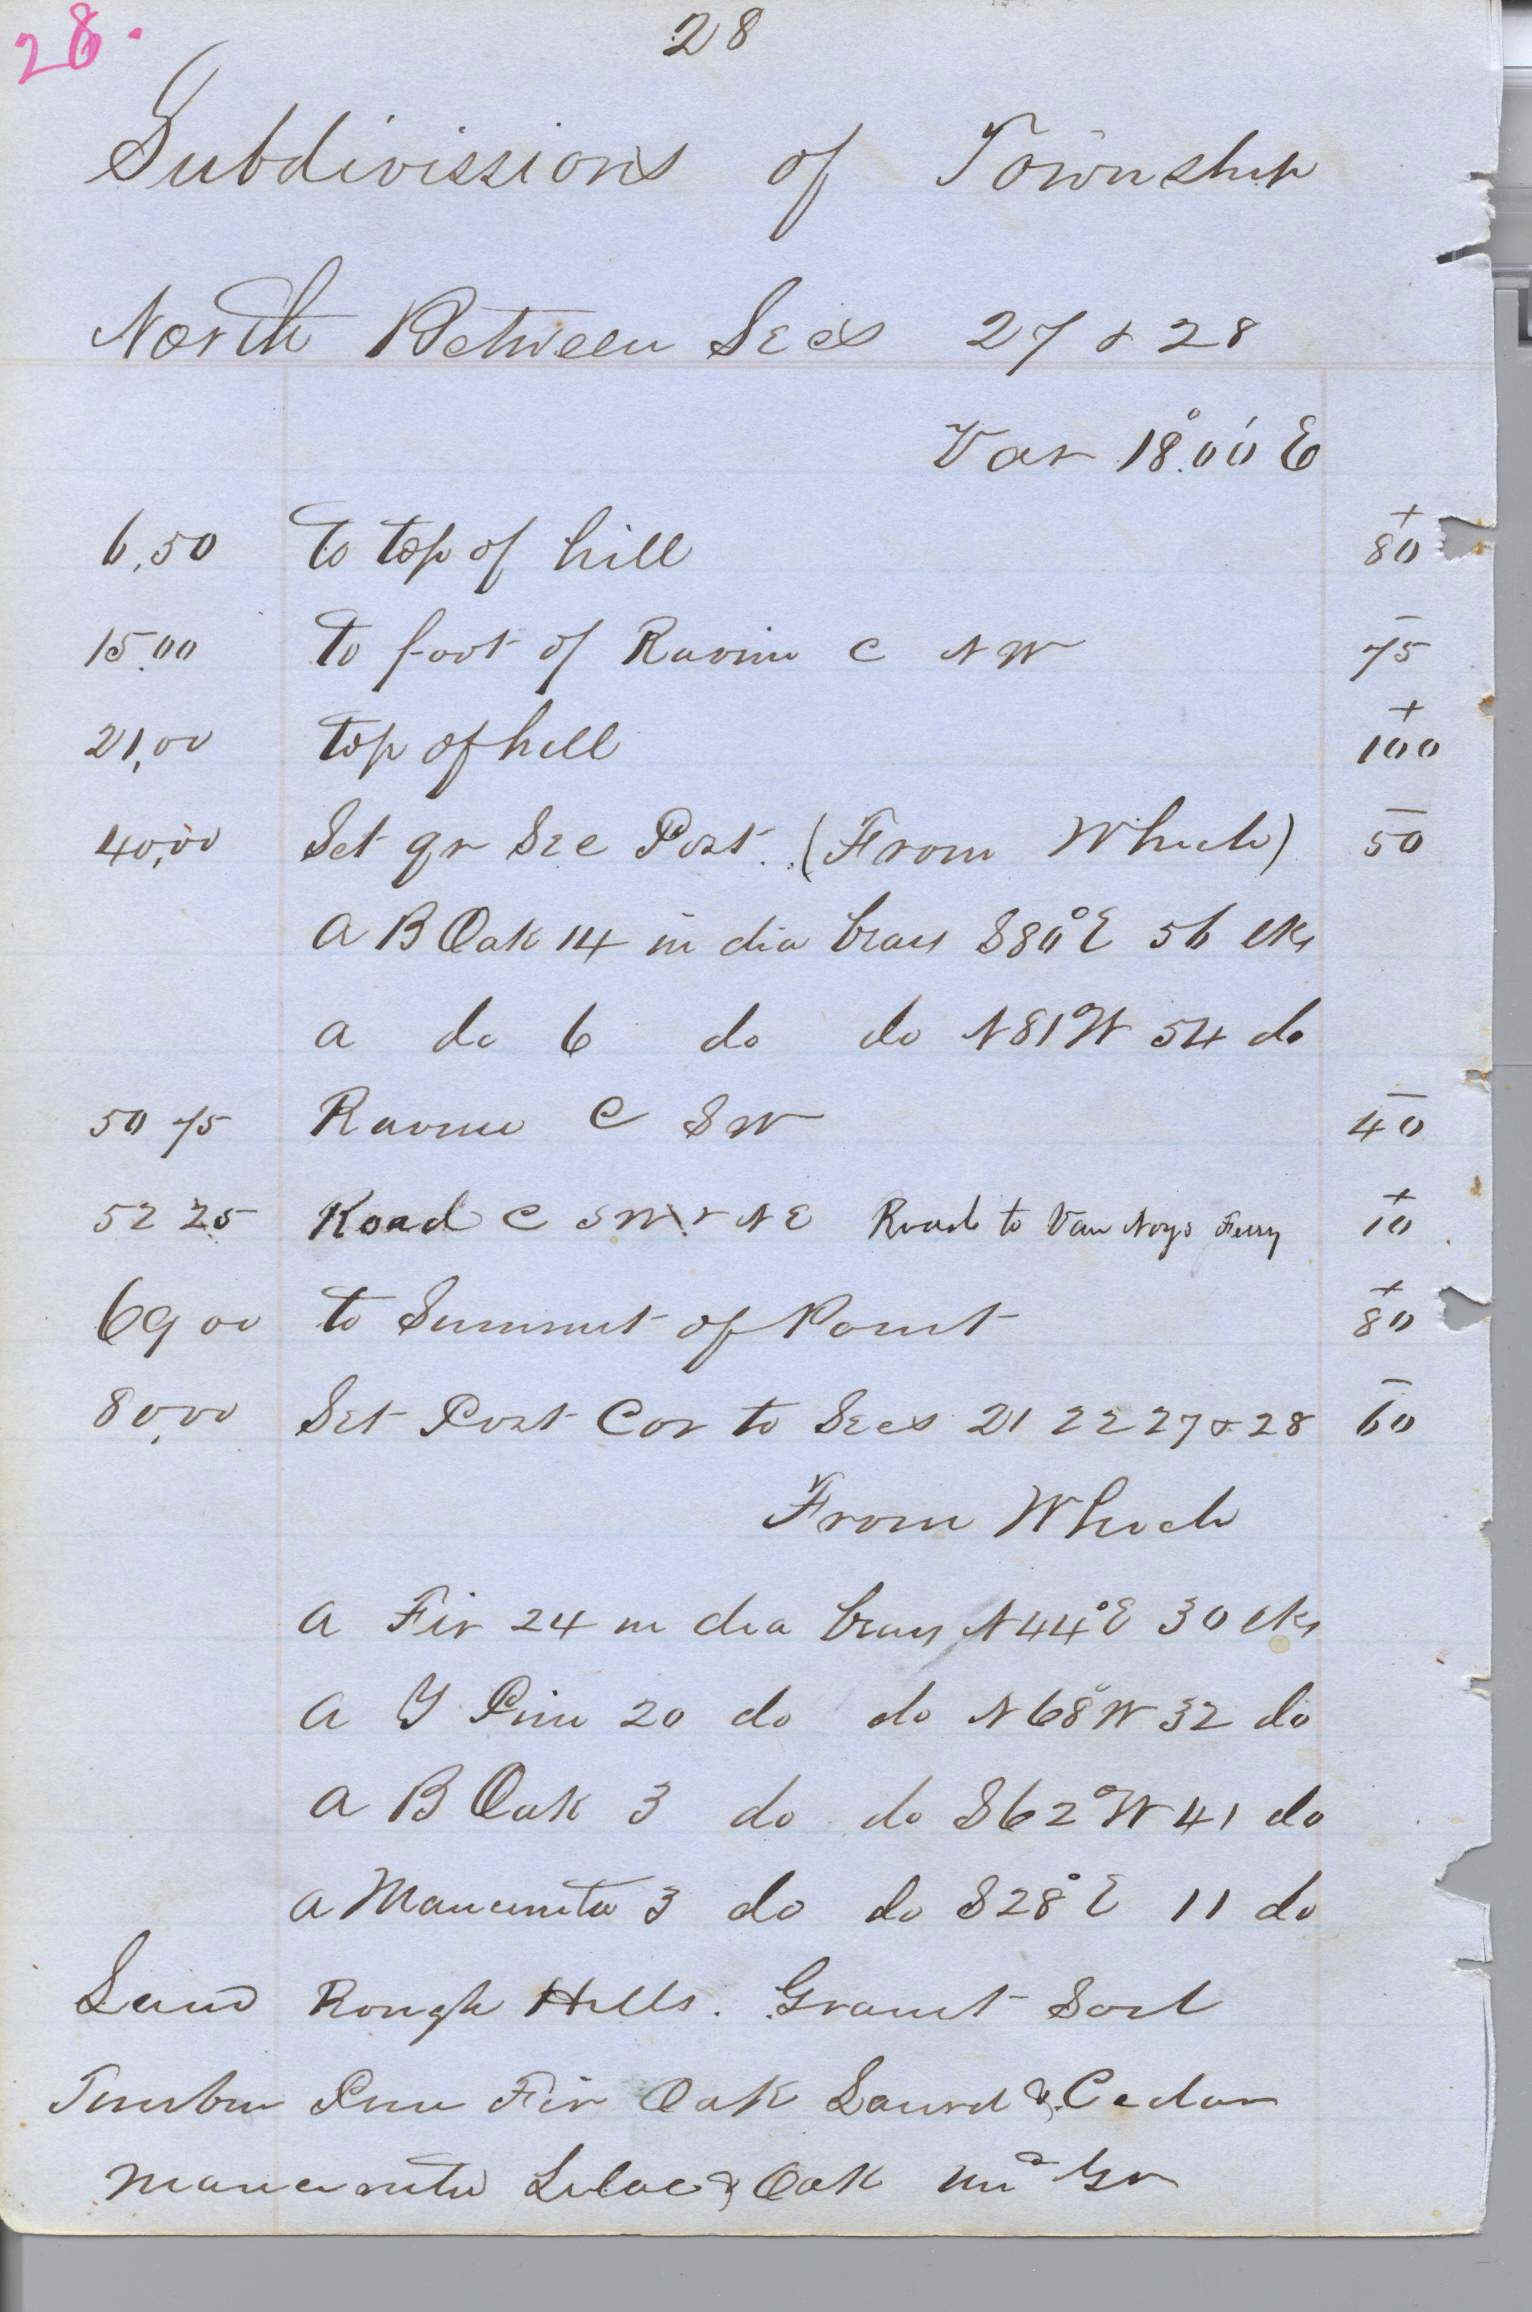 28.
28
Subdivissions of Township
North Between Secs 27 & 28
Var 18°.00' E
6,50 To top of hill + 80
15.00 To foot of Ravine C N W - 75
21,00 top of hill + 100
40,00 Set qr Sec Post. (From Which) - 50
a B Oak 14 in dia bears S 80° E 56 lks
a do 6 do do N 81° W 54 do
50 75 Ravine C S W - 40
52 25 Road C S W & N E Road to Van Noys Ferry + 10
69 00 to Summit of Point + 80
80,00 Set Post Cor to Secs 21 22 27 & 28 - 60
From Which
a Fir 24 in dia bears N 44° E 30 lks
a Y Pine 20 do do N 68° W 32 do
a B Oak 3 do do S 62° W 41 do
a Mancinita 3 do do S 28° E 11 do
Land Rough Hills. Granit Soil
Timber Pine Fir Oak Laurel & Cedar
Mancinita Lilac & Oak und Gr